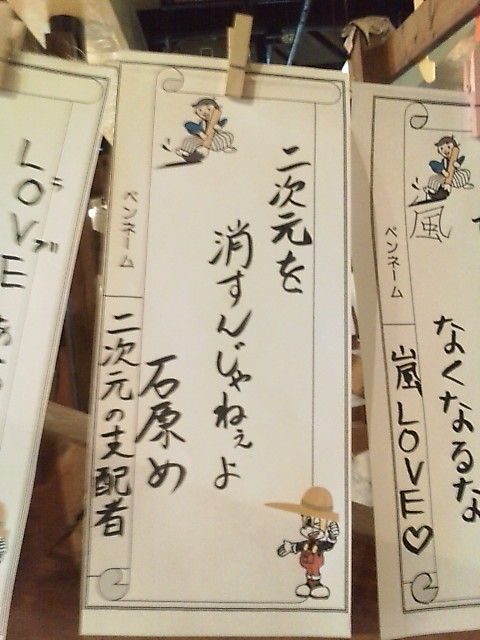 二次元を
消すんじゃねぇよ
石原め
ペンネーム
二次元の支配者
なくなるな
嵐
ペンネーム
嵐LOVE♡
LOVE
ラブ